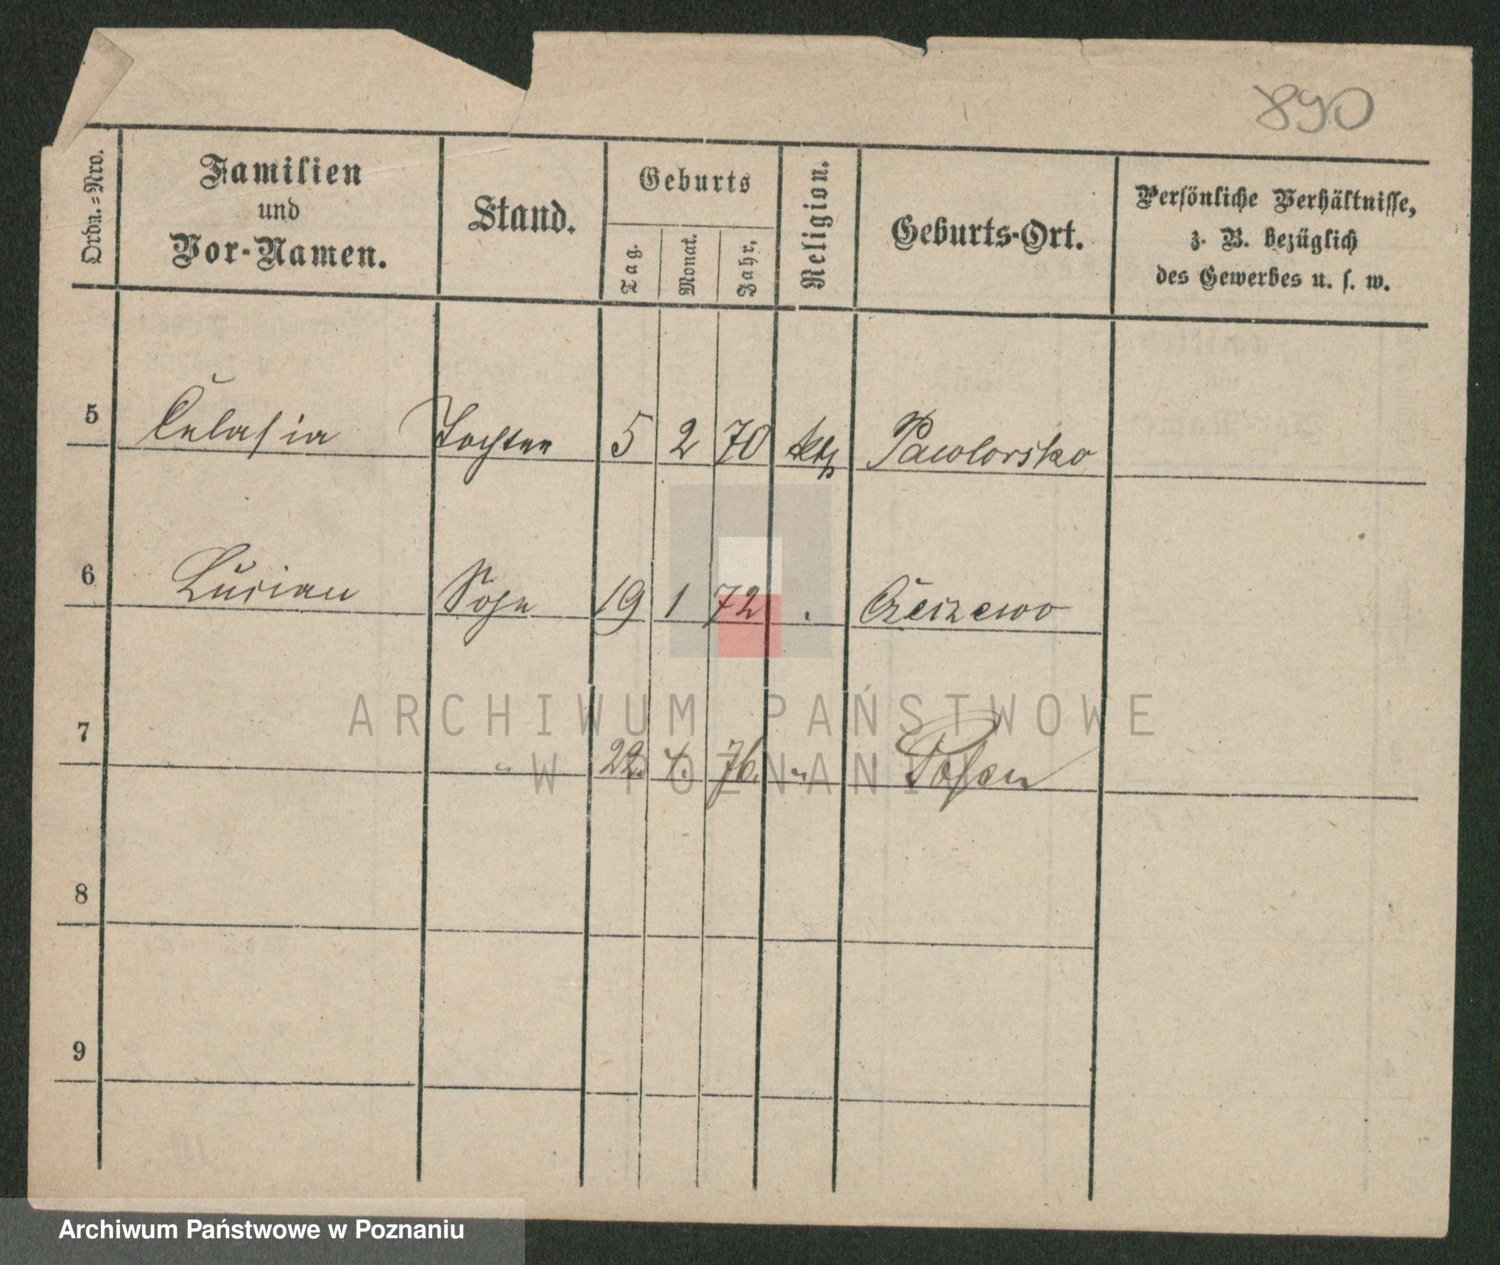 890
Ordn.-Nro.
Familien
und
Vor-Namen.
Stand.
Geburts
Tag.
Monat.
Jahr,
Religion.
Geburts-Ort.
Persönliche Verhältnisse,
z. B. bezüglich
des Gewerbes u. s. w.
5 Tochter 5 2 70 kth
6 Lucian Sohn 19 1 72 . Czeszewo
7 " 22. 4. 76. " Posen
8
9
ARCHIWUM PAŃSTWOWE
W POZNANIU
Archiwum Państwowe w Poznaniu